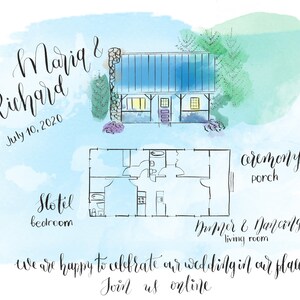 Maria &
Richard
July 10, 2020
ceremony
porch
Hotel
bedroom
Dinner & Dancing
living room
we are happy to celebrate our wedding in our place
Join us online